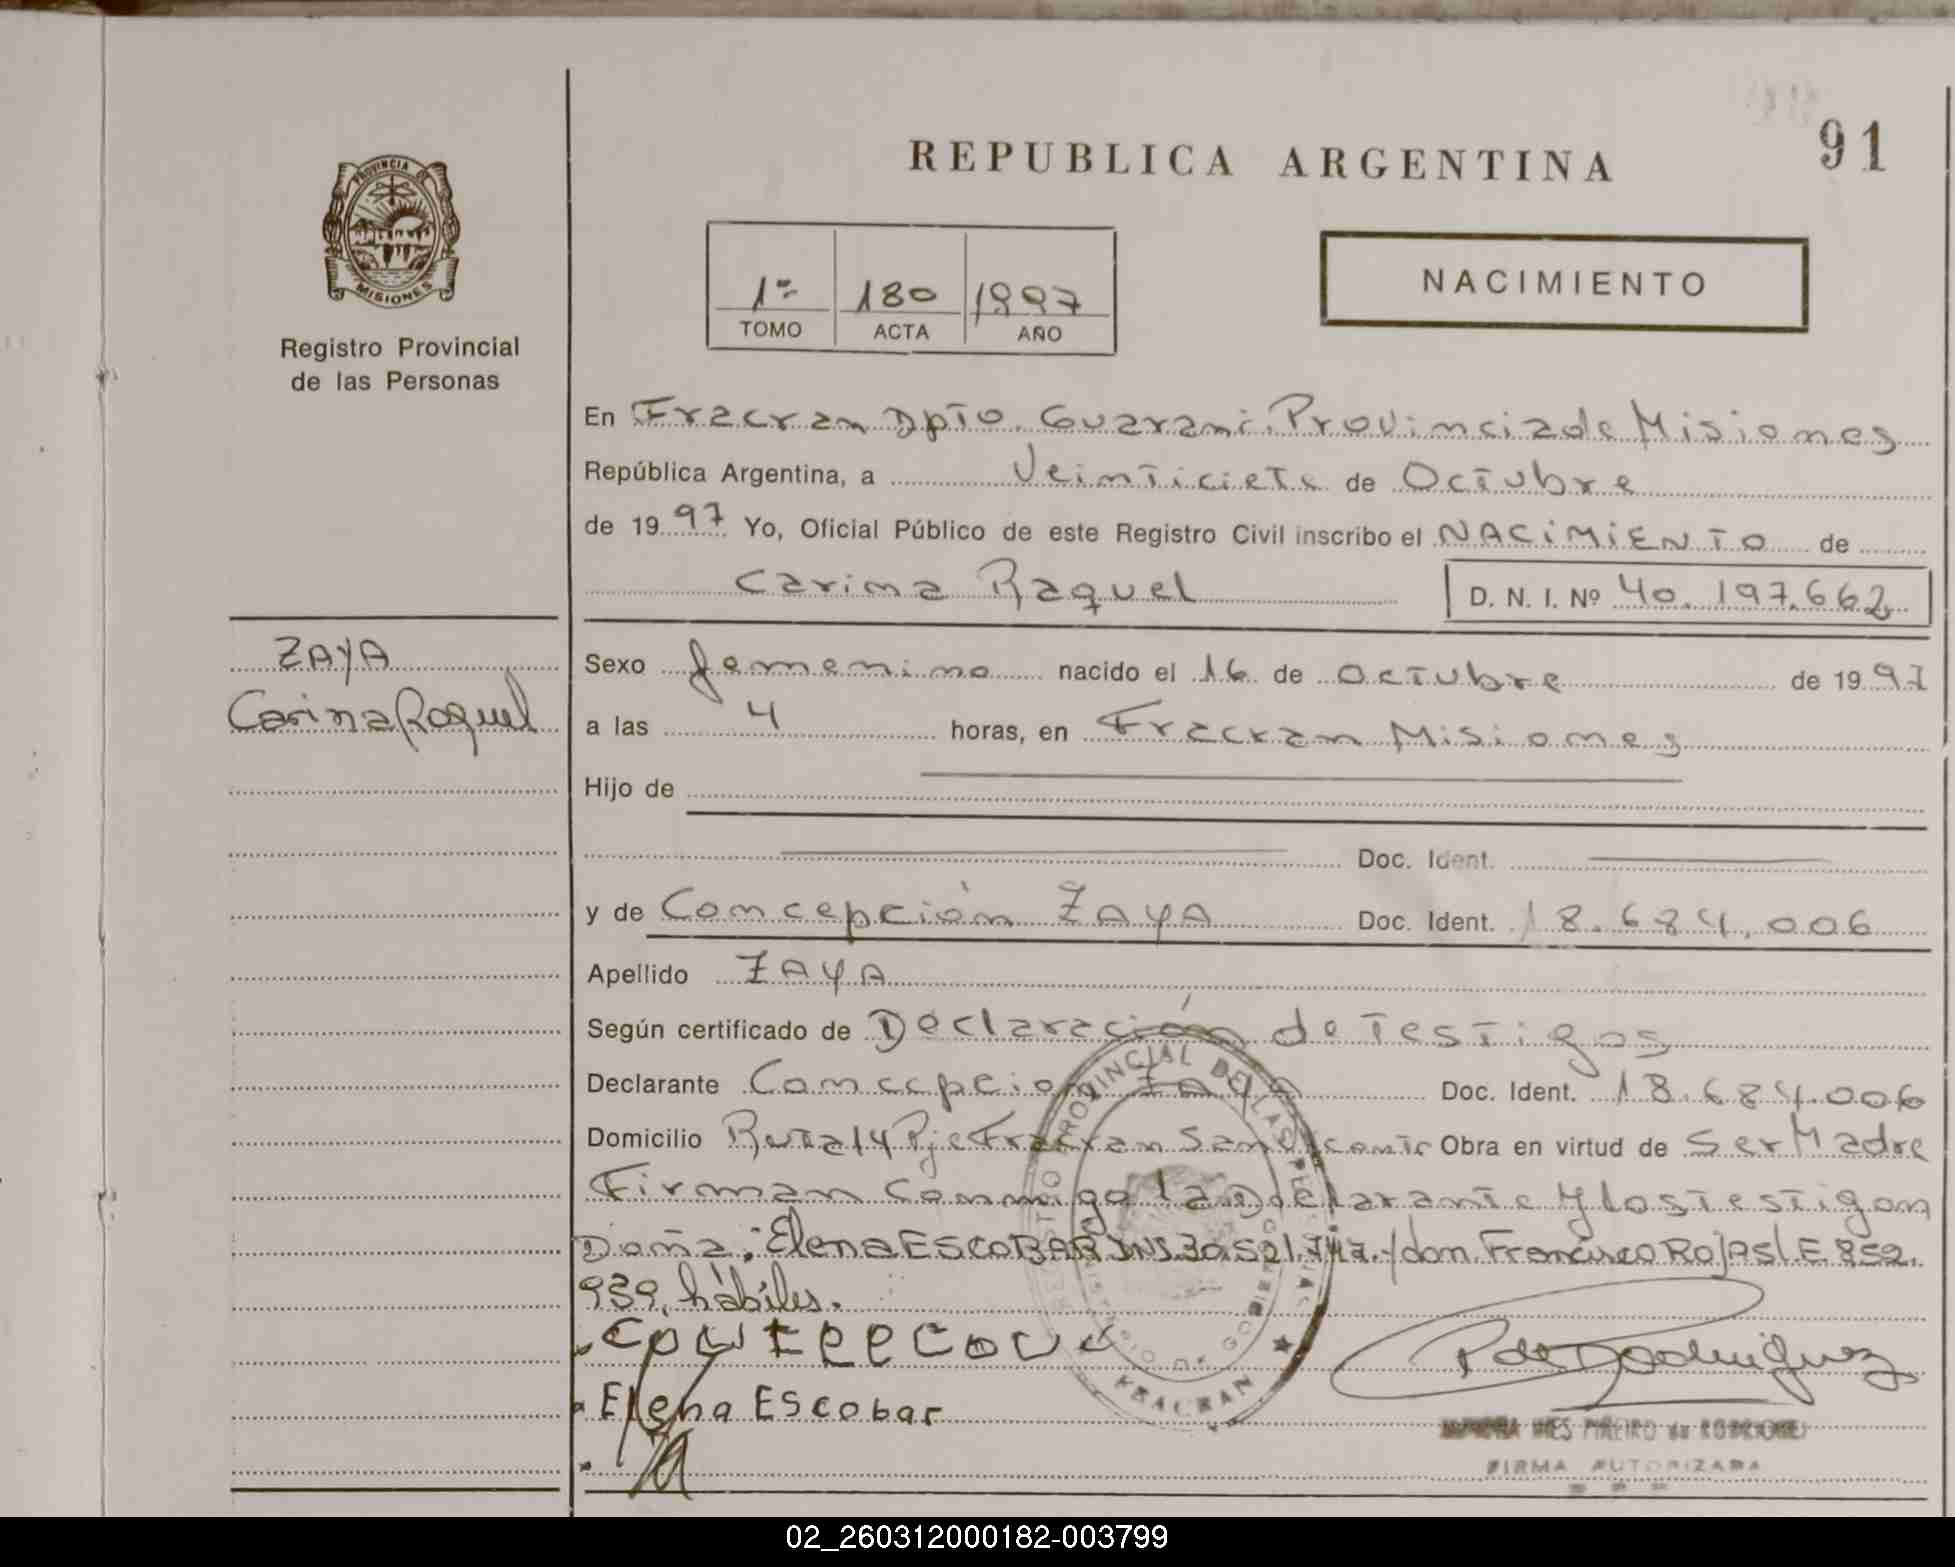 REPUBLICA ARGENTINA
91
PROVINCIA DE
MISIONES
Registro Provincial
de las Personas
1º 180 1997
TOMO ACTA AÑO
NACIMIENTO
En Fracran Dpto. Guarani. Provincia de Misiones
República Argentina, a Veinticiete de Octubre
de 1997 Yo, Oficial Público de este Registro Civil inscribo el NACiMiENTO de
Carina Raquel D. N. I. Nº 40.197.662
ZAYA
Carina Raquel
Sexo femenino nacido el 16 de Octubre de 1997
a las 4 horas, en Fracran Misiones
Hijo de
Doc. Ident.
y de Concepción ZAYA Doc. Ident. 18.684.006
Apellido ZAYA
Según certificado de Declaración de Testigos
Declarante Concepcion Zaya Doc. Ident. 18.684.006
Domicilio Ruta 14 Pje Fracran San Vicente Obra en virtud de Ser Madre
Firman Conmigo la Declarante y los testigon
Doña: Elena ESCOBAR DNI 30.521.747. y don Francisco Rojas L.E 852.
939, hábiles.
Elena Escobar
REGISTRO PROVINCIAL DE LAS PERSONAS
MINISTERIO DE GOBIERNO
FRACRAN
P de Rodriguez
INES PIÑEIRO de RODRIGUEZ
FIRMA AUTORIZADA
02_260312000182-003799